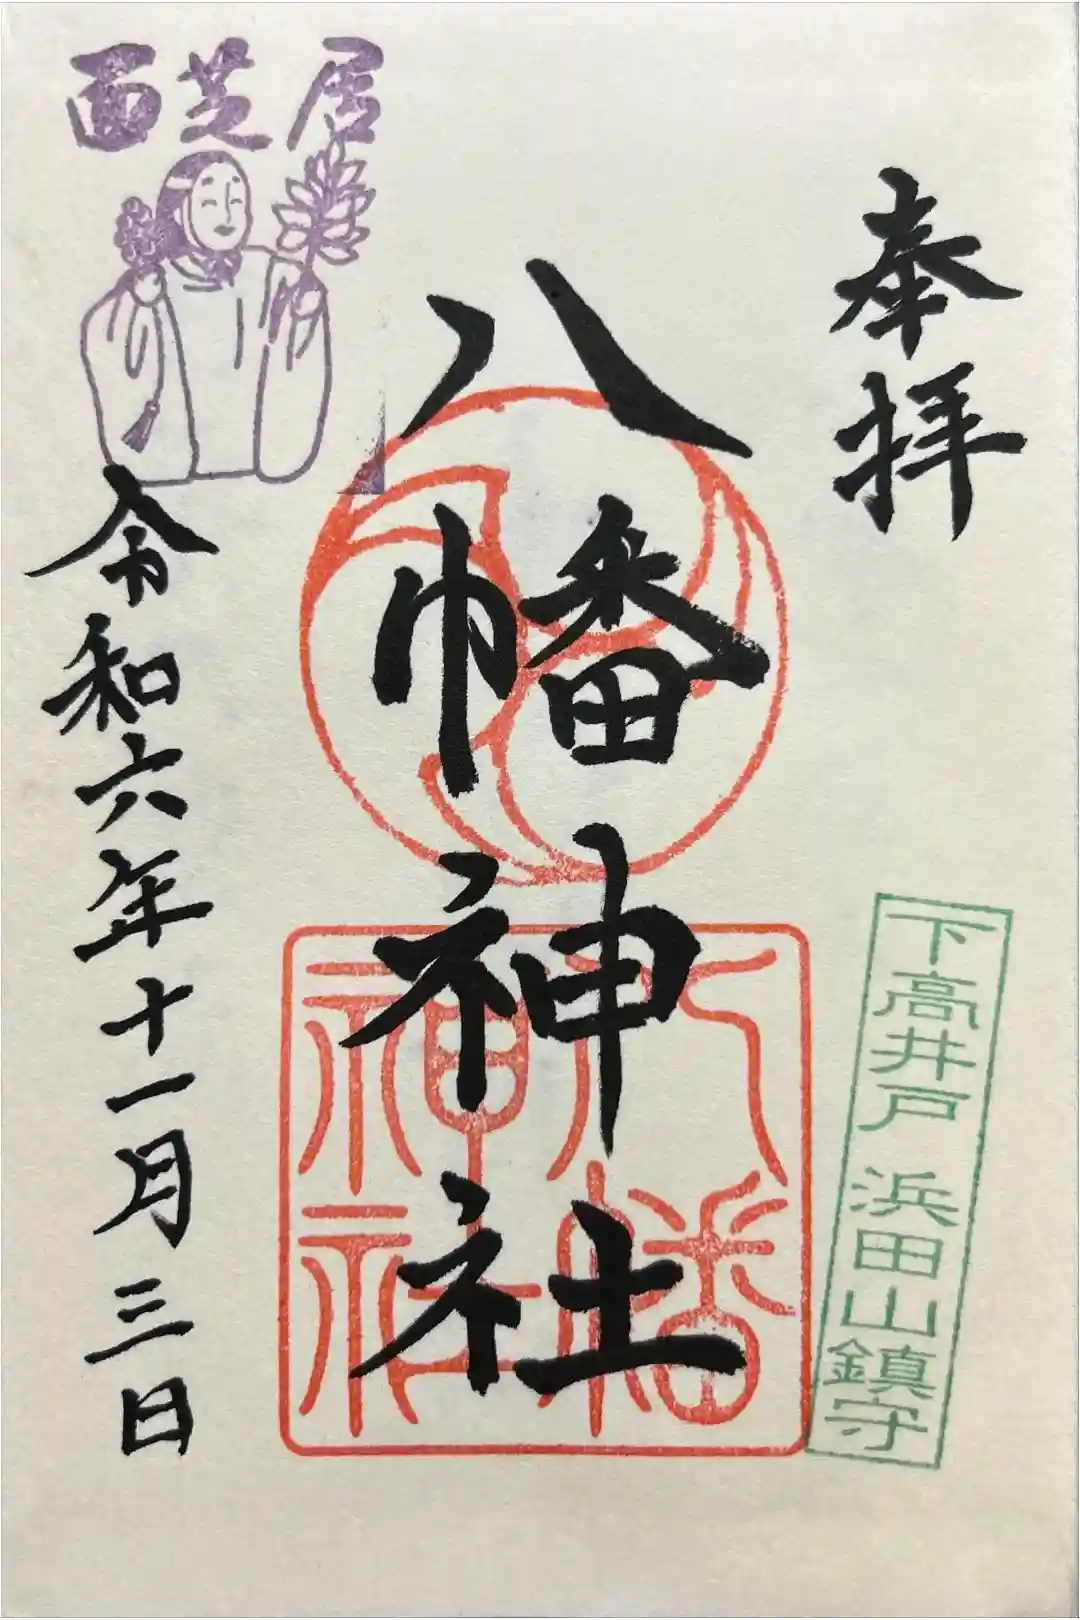 奉拝
八幡神社
八幡神社
下高井戸 浜田山鎮守
面芝居
令和六年十一月三日